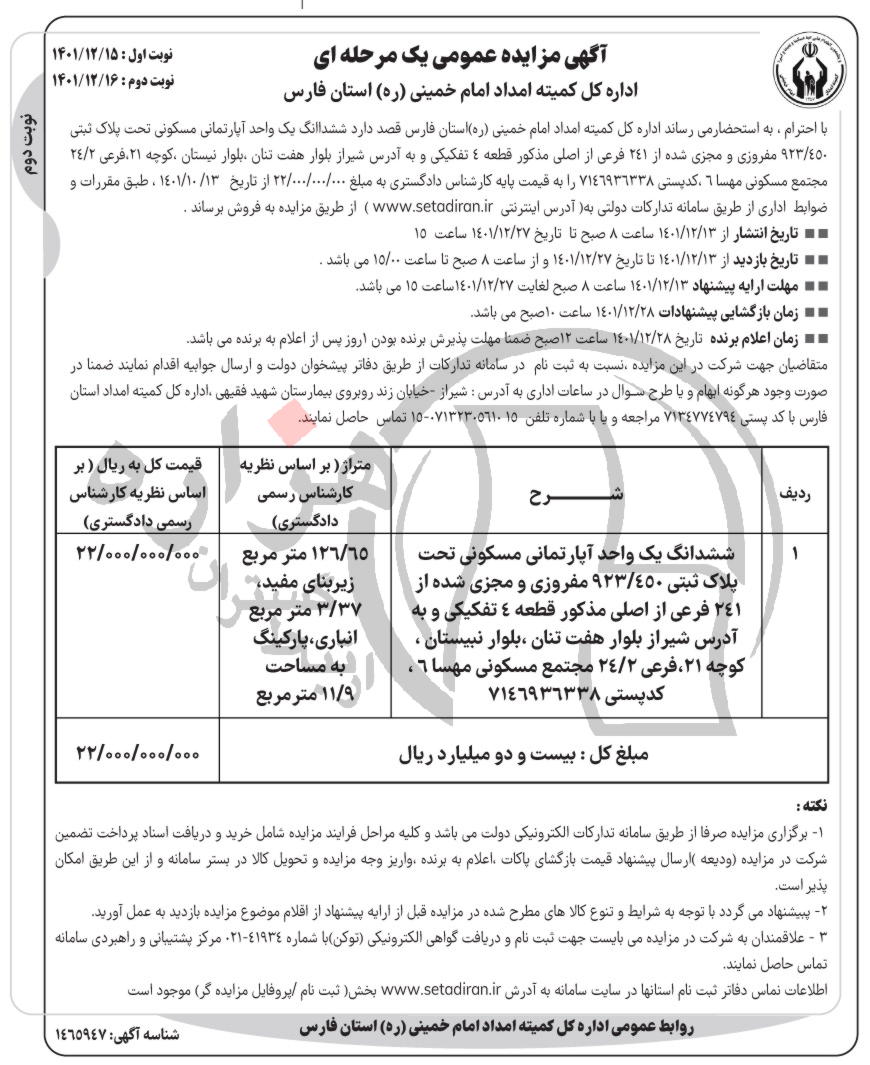 آگهی مزایده عمومی یک مرحله ای
اداره کل کمیته امداد امام خمینی (ره) استان فارس
نوبت اول : ۱۴۰۱/۱۲/۱۵
نوبت دوم : ۱۴۰۱/۱۲/۱۶
نوبت دوم
با احترام ، به استحضارمی رساند اداره کل کمیته امداد امام خمینی (ره)استان فارس قصد دارد ششداانگ یک واحد آپارتمانی مسکونی تحت پلاک ثبتی
۹۲۳/٤٥۰ مفروزی و مجزی شده از ۲٤۱ فرعی از اصلی مذکور قطعه ٤ تفکیکی و به آدرس شیراز بلوار هفت تنان ،بلوار نیستان ،کوچه ۲۱،فرعی ۲٤/۲
مجتمع مسکونی مهسا ٦ ،کدپستی ۷۱٤٦۹۳٦۳۳۸ را به قیمت پایه کارشناس دادگستری به مبلغ ۲۲/۰۰۰/۰۰۰/۰۰۰ از تاریخ ۱٤۰۱/۱۰/۱۳ ، طبق مقررات و
ضوابط اداری از طریق سامانه تدارکات دولتی به( آدرس اینترنتی www.setadiran.ir ) از طریق مزایده به فروش برساند .
■■ تاریخ انتشار از ۱٤۰۱/۱۲/۱۳ ساعت ۸ صبح تا تاریخ ۱٤۰۱/۱۲/۲۷ ساعت ۱٥
■■ تاریخ بازدید از ۱٤۰۱/۱۲/۱۳ تا تاریخ ۱٤۰۱/۱۲/۲۷ و از ساعت ۸ صبح تا ساعت ۱٥/۰۰ می باشد .
■■ مهلت ارایه پیشنهاد ۱٤۰۱/۱۲/۱۳ ساعت ۸ صبح لغایت ۱٤۰۱/۱۲/۲۷ساعت ۱٥ می باشد.
■■ زمان بازگشایی پیشنهادات ۱٤۰۱/۱۲/۲۸ ساعت ۱۰صبح می باشد.
■■ زمان اعلام برنده تاریخ ۱٤۰۱/۱۲/۲۸ ساعت ۱۲صبح ضمنا مهلت پذیرش برنده بودن ۱روز پس از اعلام به برنده می باشد.
متقاضیان جهت شرکت در این مزایده ،نسبت به ثبت نام در سامانه تدارکات از طریق دفاتر پیشخوان دولت و ارسال جوابیه اقدام نمایند ضمنا در
صورت وجود هرگونه ابهام و یا طرح سوال در ساعات اداری به آدرس : شیراز -خیابان زند روبروی بیمارستان شهید فقیهی ،اداره کل کمیته امداد استان
فارس با کد پستی ۷۱۳٤۷۷٤۷۹٤ مراجعه و یا با شماره تلفن ۱٥ ۰۷۱۳۲۳۰٥٦۱۰-۱٥ تماس حاصل نمایند.
ردیف
شـــــــرح
متراژ ( بر اساس نظریه
کارشناس رسمی
دادگستری)
قیمت کل به ریال ( بر
اساس نظریه کارشناس
رسمی دادگستری)
۱
ششدانگ یک واحد آپارتمانی مسکونی تحت
پلاک ثبتی ۹۲۳/٤٥۰ مفروزی و مجزی شده از
۲٤۱ فرعی از اصلی مذکور قطعه ٤ تفکیکی و به
آدرس شیراز بلوار هفت تنان ،بلوار نبیستان ،
کوچه ۲۱،فرعی ۲٤/۲ مجتمع مسکونی مهسا ٦ ،
کدپستی ۷۱٤٦۹۳٦۳۳۸
۱۲٦/٦٥ متر مربع
زیربنای مفید،
۳/۳۷ متر مربع
انباری،پارکینگ
به مساحت
۱۱/۹ مترمربع
۲۲/۰۰۰/۰۰۰/۰۰۰
مبلغ کل : بیست و دو میلیارد ریال
۲۲/۰۰۰/۰۰۰/۰۰۰
نکته :
۱- برگزاری مزایده صرفا از طریق سامانه تدارکات الکترونیکی دولت می باشد و کلیه مراحل فرایند مزایده شامل خرید و دریافت اسناد پرداخت تضمین
شرکت در مزایده (ودیعه )ارسال پیشنهاد قیمت بازگشای پاکات ،اعلام به برنده ،واریز وجه مزایده و تحویل کالا در بستر سامانه و از این طریق امکان
پذیر است.
۲- پیشنهاد می گردد با توجه به شرایط و تنوع کالا های مطرح شده در مزایده قبل از ارایه پیشنهاد از اقلام موضوع مزایده بازدید به عمل آورید.
۳ - علاقمندان به شرکت در مزایده می بایست جهت ثبت نام و دریافت گواهی الکترونیکی (توکن)با شماره ٤۱۹۳٤-۰۲۱ مرکز پشتیبانی و راهبردی سامانه
تماس حاصل نمایند.
اطلاعات تماس دفاتر ثبت نام استانها در سایت سامانه به آدرش www.setadiran.ir بخش( ثبت نام /پروفایل مزایده گر) موجود است
روابط عمومی اداره کل کمیته امداد امام خمینی (ره) استان فارس
شناسه آگهی: ۱٤٦٥۹٤۷
هزاره